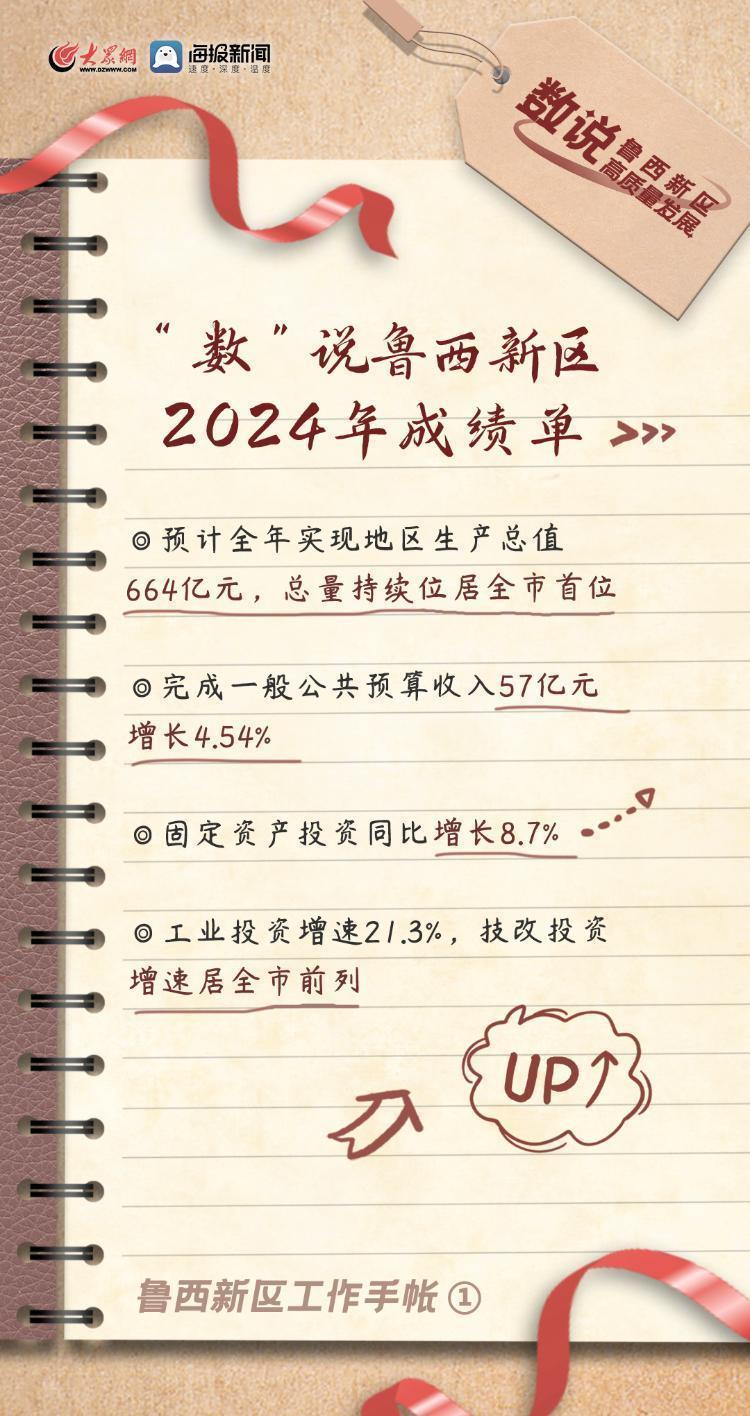 大众网
WWW.DZWWW.COM
海报新闻
速度·深度·温度
数说
鲁西新区
高质量发展
“数”说鲁西新区
2024年成绩单 >>>
◎预计全年实现地区生产总值
664亿元，总量持续位居全市首位
◎完成一般公共预算收入57亿元
增长4.54%
◎固定资产投资同比增长8.7%
◎工业投资增速21.3%，技改投资
增速居全市前列
UP↑
鲁西新区工作手帐①